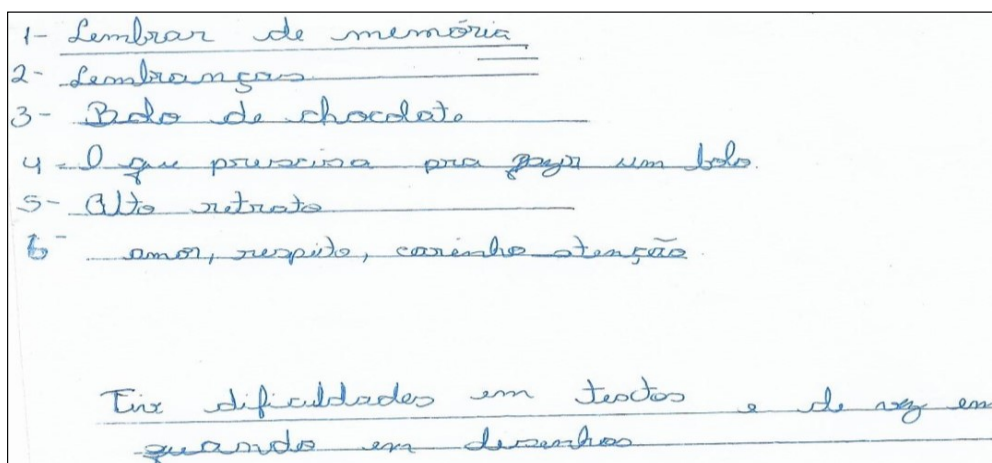 1- Lembrar de memória
2- Lembranças
3- Bolo de chocolate
4- O que prescisa pra fazer um bolo.
5- Alto retrato
6- amor, respito, carinho atenção.
Tive dificuldades em textos e de vez em
quando em desenhos